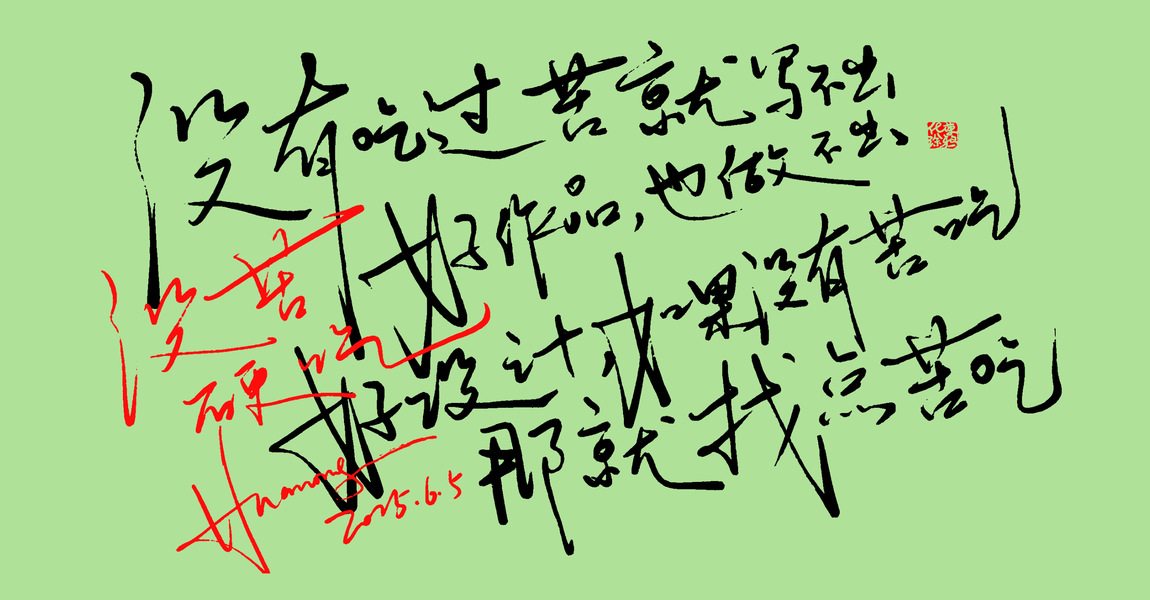 没有吃过苦就写不出
好作品,也做不出
好设计如果没有苦吃
那就找点苦吃
没苦
硬吃
2025.6.5